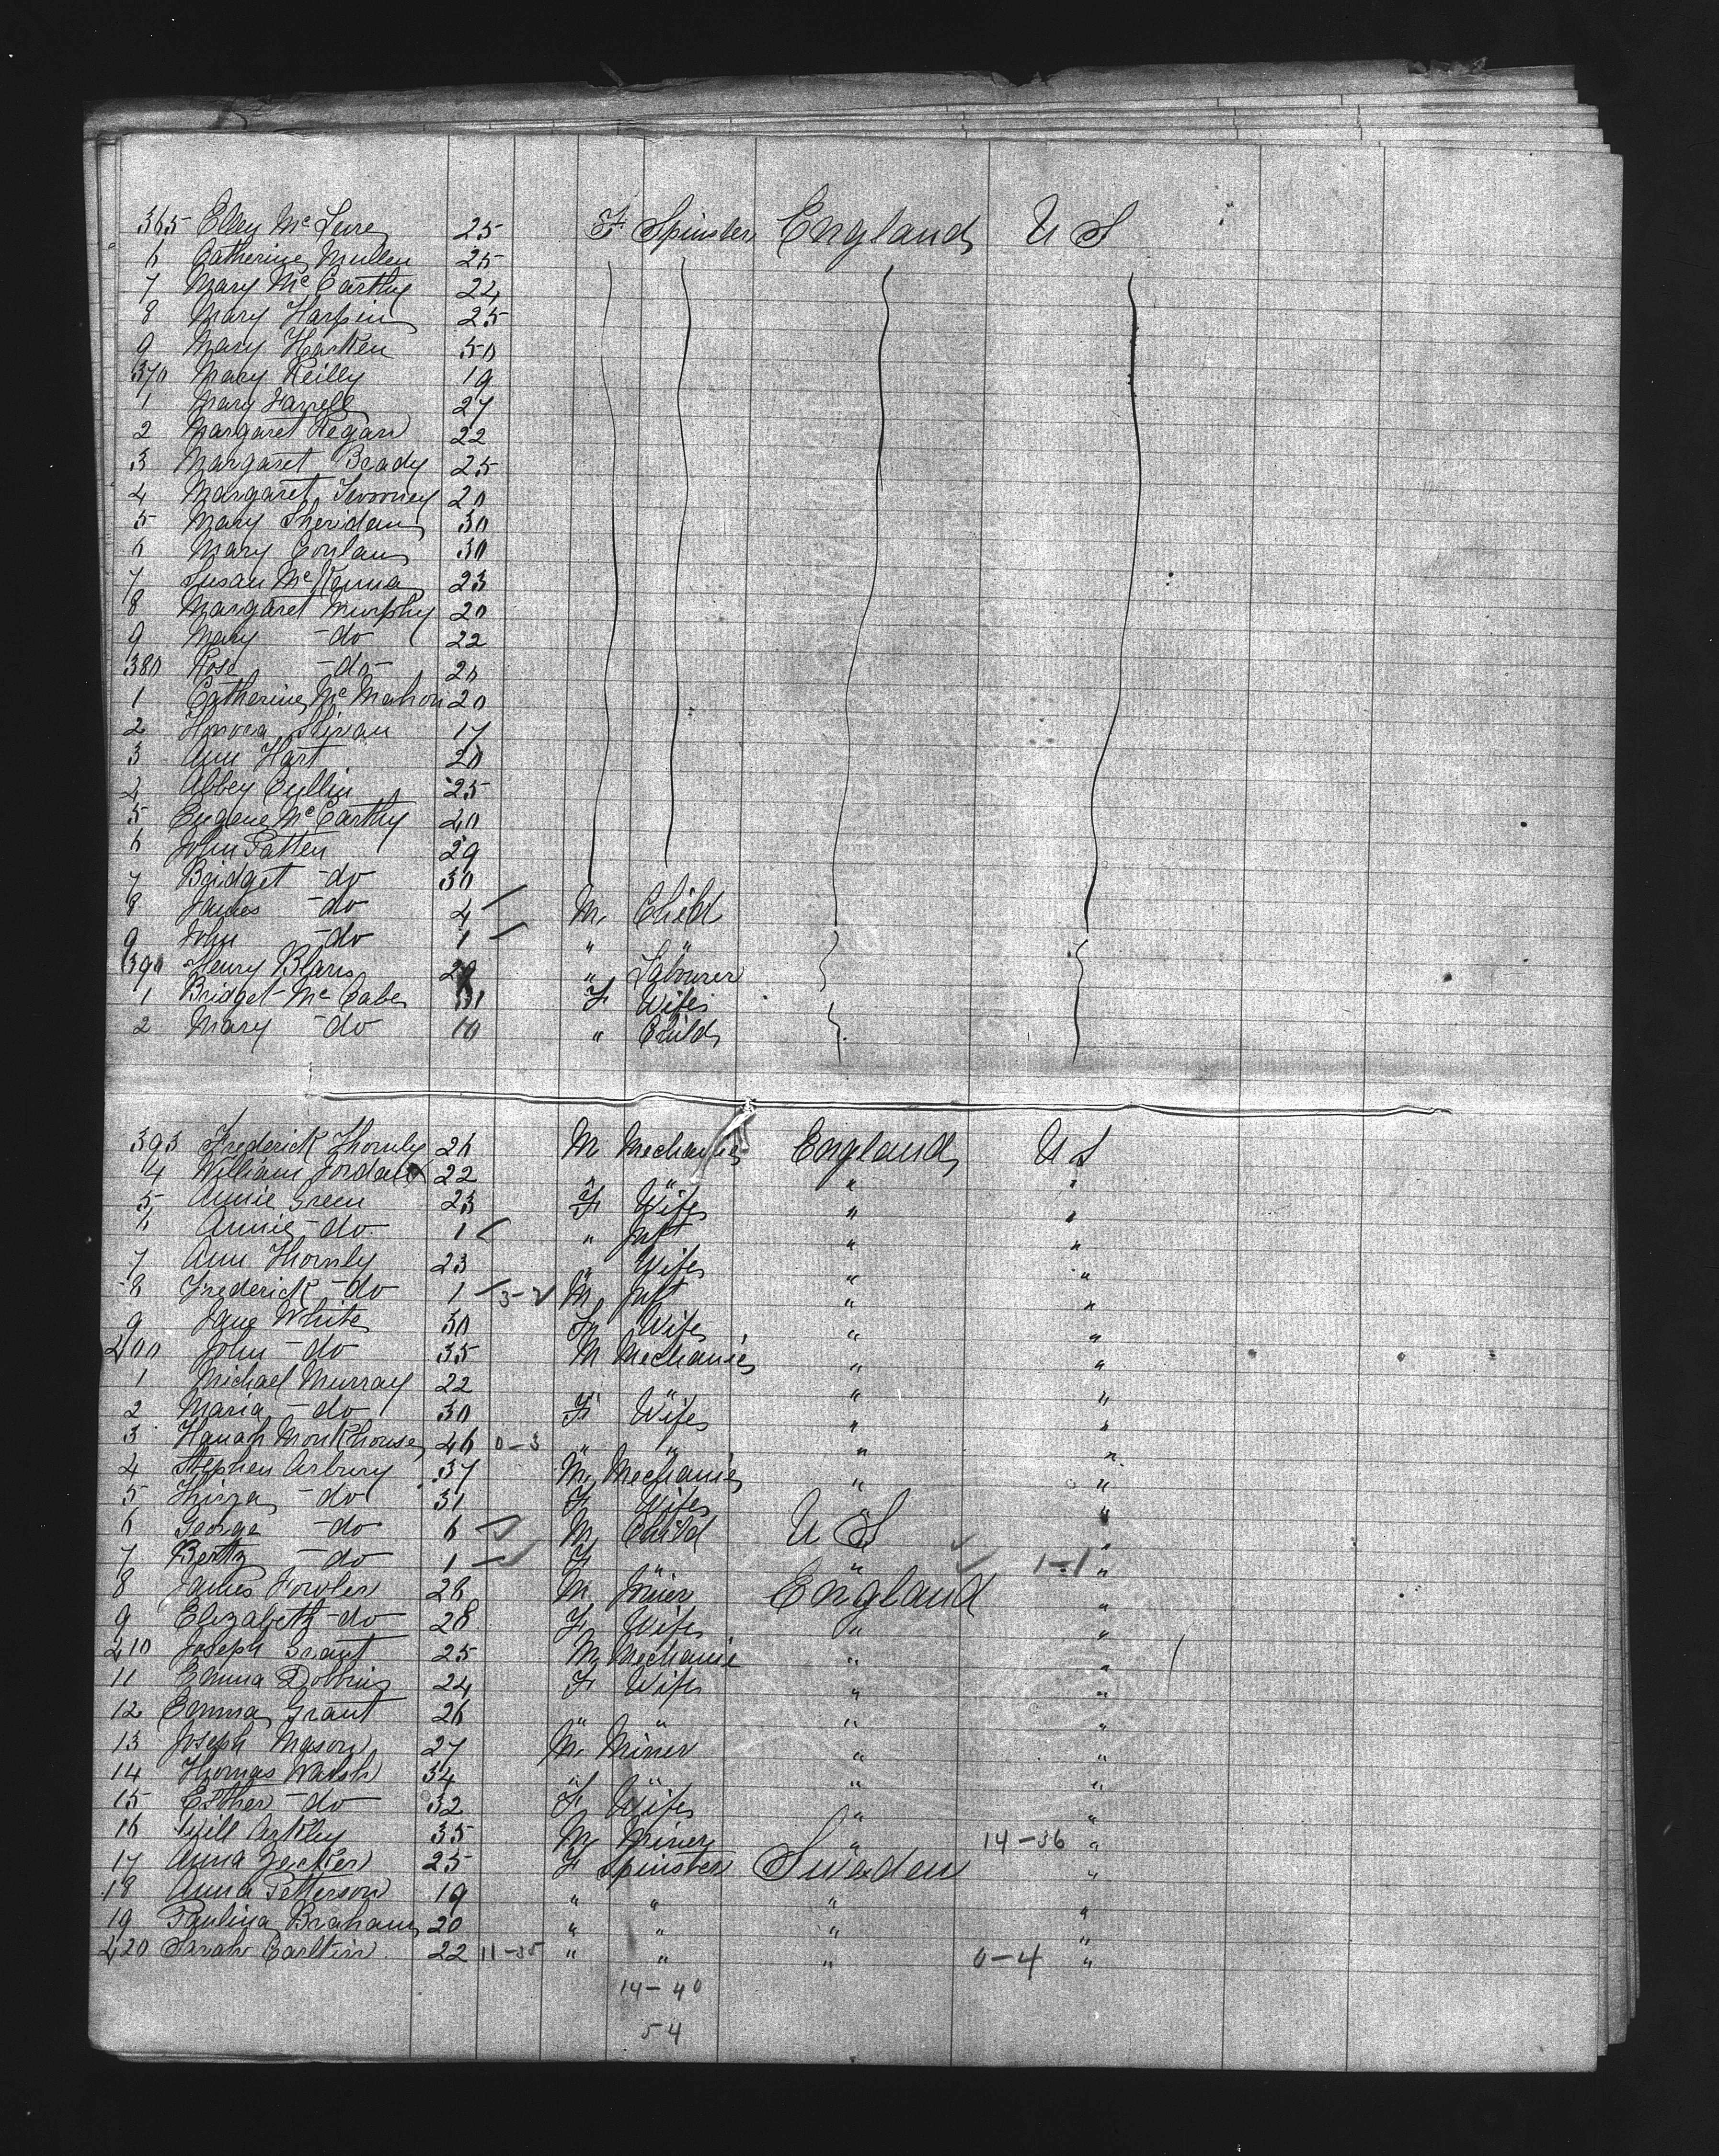 365 Elley Mc 25 F Spinster England U S
6 Catherine Mullen 25
7 Mary McCarthy 24
8 Mary Harpin 25
9 Mary Harken 50
370 Mary Reilly 19
1 Mary Farrell 27
2 Margaret Regan 22
3 Margaret Brady 25
4 Margaret Twomey 20
5 Mary Sheridan 30
6 Mary Conlan 30
7 Susan McKenna 23
8 Margaret Murphy 20
9 Mary -do 22
380 Rose -do-
1 Catherine McMahon 20
2 Honora 17
3 Ann Hart 20
4 Abbey Cullin 25
5 Eugene McCarthy 40
6 John Patten 29
7 Bridget -do 30
8 James -do 4 M Child
9 John -do 1 " "
390 Henry " Labourer
1 Bridget McCabe 31 F Wife
2 Mary -do 10 " Child
393 Frederick Thornly 26 M Mechanic England U S
4 William Jordan 22 " " " "
5 Annie Green 23 F Wife " "
6 Annie -do 1 " Inft " "
7 Ann Thornly 23 " Wife " "
8 Frederick -do 1 3-2 M Inft " "
9 Jane White 30 F Wife " "
400 John -do 35 M Mechanic " "
1 Michael Murray 22 " " " "
2 Maria -do 30 F Wife " "
3 Hanah Monkhouse 46 0-3 " " " "
4 Stephen Asbury 37 M Mechanic " "
5 Thirza -do 31 F Wife " "
6 George -do 6 M Child U S "
7 -do 1 F " " 1-1 "
8 James Fowler 28 M England "
9 Elizabeth -do 28 F Wife " "
410 Joseph Grant 25 M Mechanic " "
11 Emma Dobbins 24 F Wife " "
12 Emma Grant 26 " " " "
13 Joseph Mason 27 M Miner " "
14 Thomas Walsh 34 " " " "
15 Esther -do 32 F Wife " "
16 Will 35 M Miner " 14-36 "
17 Anna 25 F Spinster Sweden "
18 Anna Petterson 19 " " " "
19 Paulina Braham 20 " " " "
420 Sarah Carltin 22 11-35 " " " 0-4 "
14-40
54